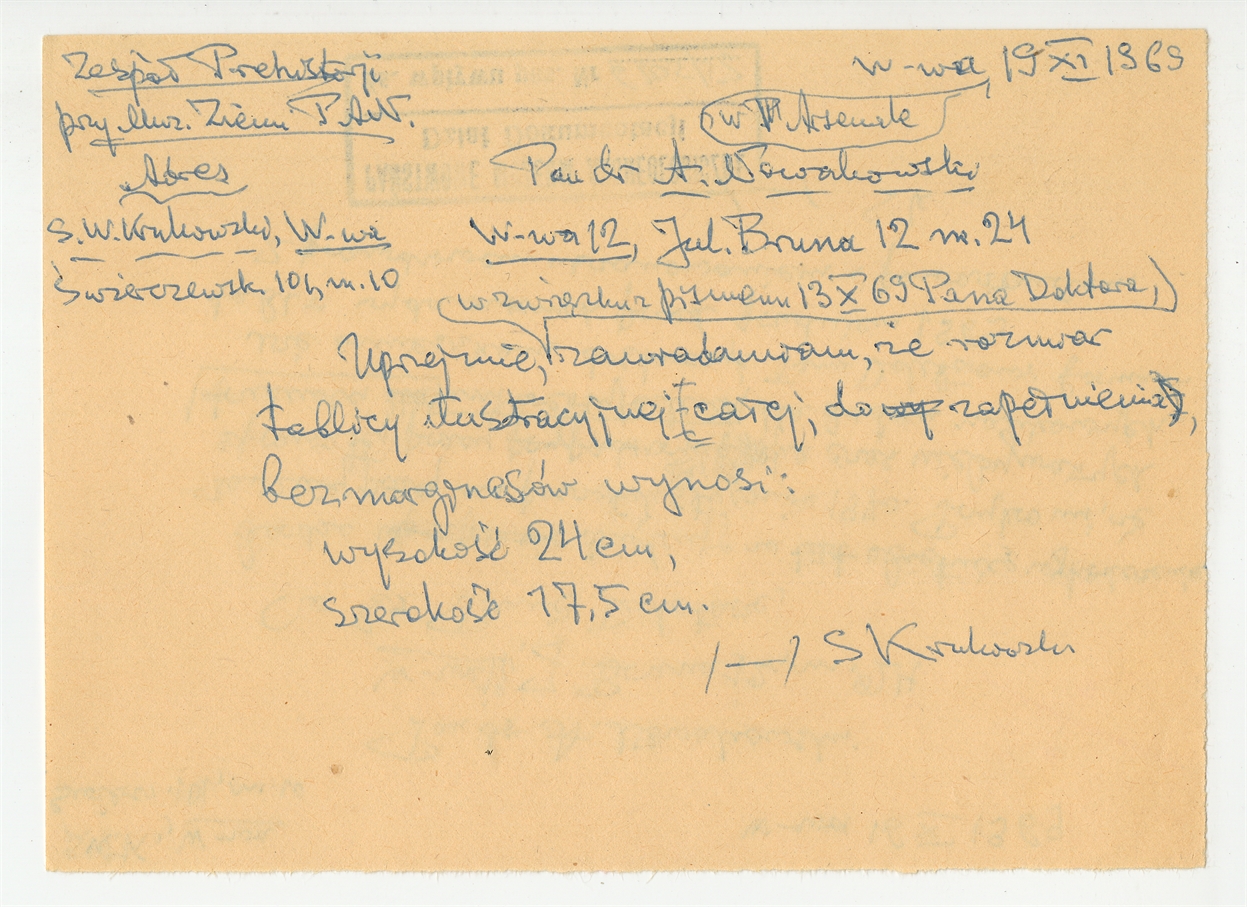 Zespół Prehistorji
przy Muz. Ziemi P.A.N.
Adres
S. W. Krukowski, W-wa
Świerczewsk. 101, m. 10
W-wa, 19 XI 1969
w Arsenale
Pan dr A. Nowakowski
W-wa 12, Jul. Bruna 12 m. 24
w związku z pismem 13 X 69 Pana Doktora,
Uprzejmie, zawiadamiam, że rozmiar
tablicy ilustracyjnej [całej, do zapełnienia],
bez marginesów wynosi:
wysokość 24 cm,
szerokość 17,5 cm.
/—/ S Krukowski